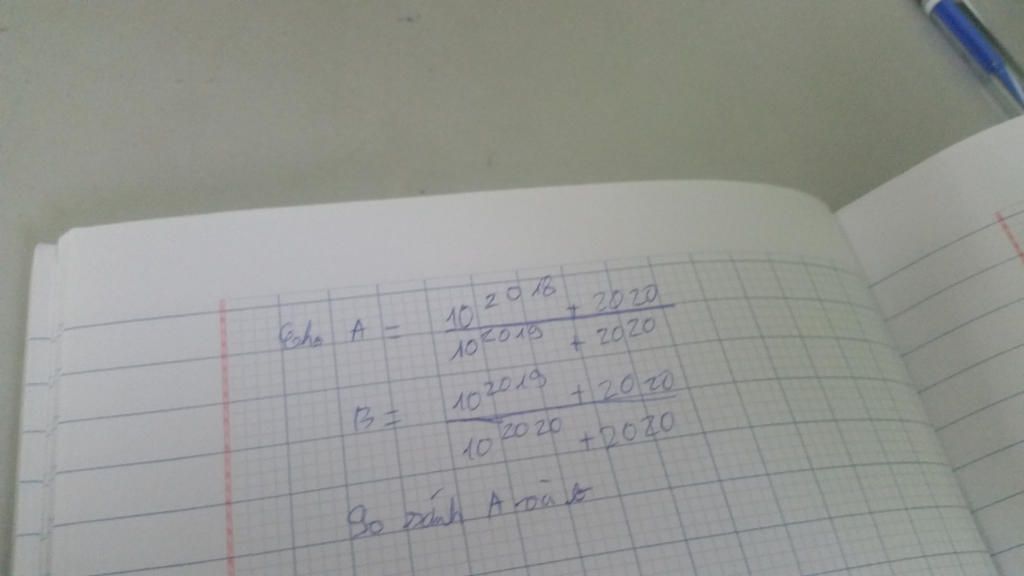 Cho A = \frac{10^{2018} + 2020}{10^{2019} + 2020}
B = \frac{10^{2019} + 2020}{10^{2020} + 2020}
So sánh A và B